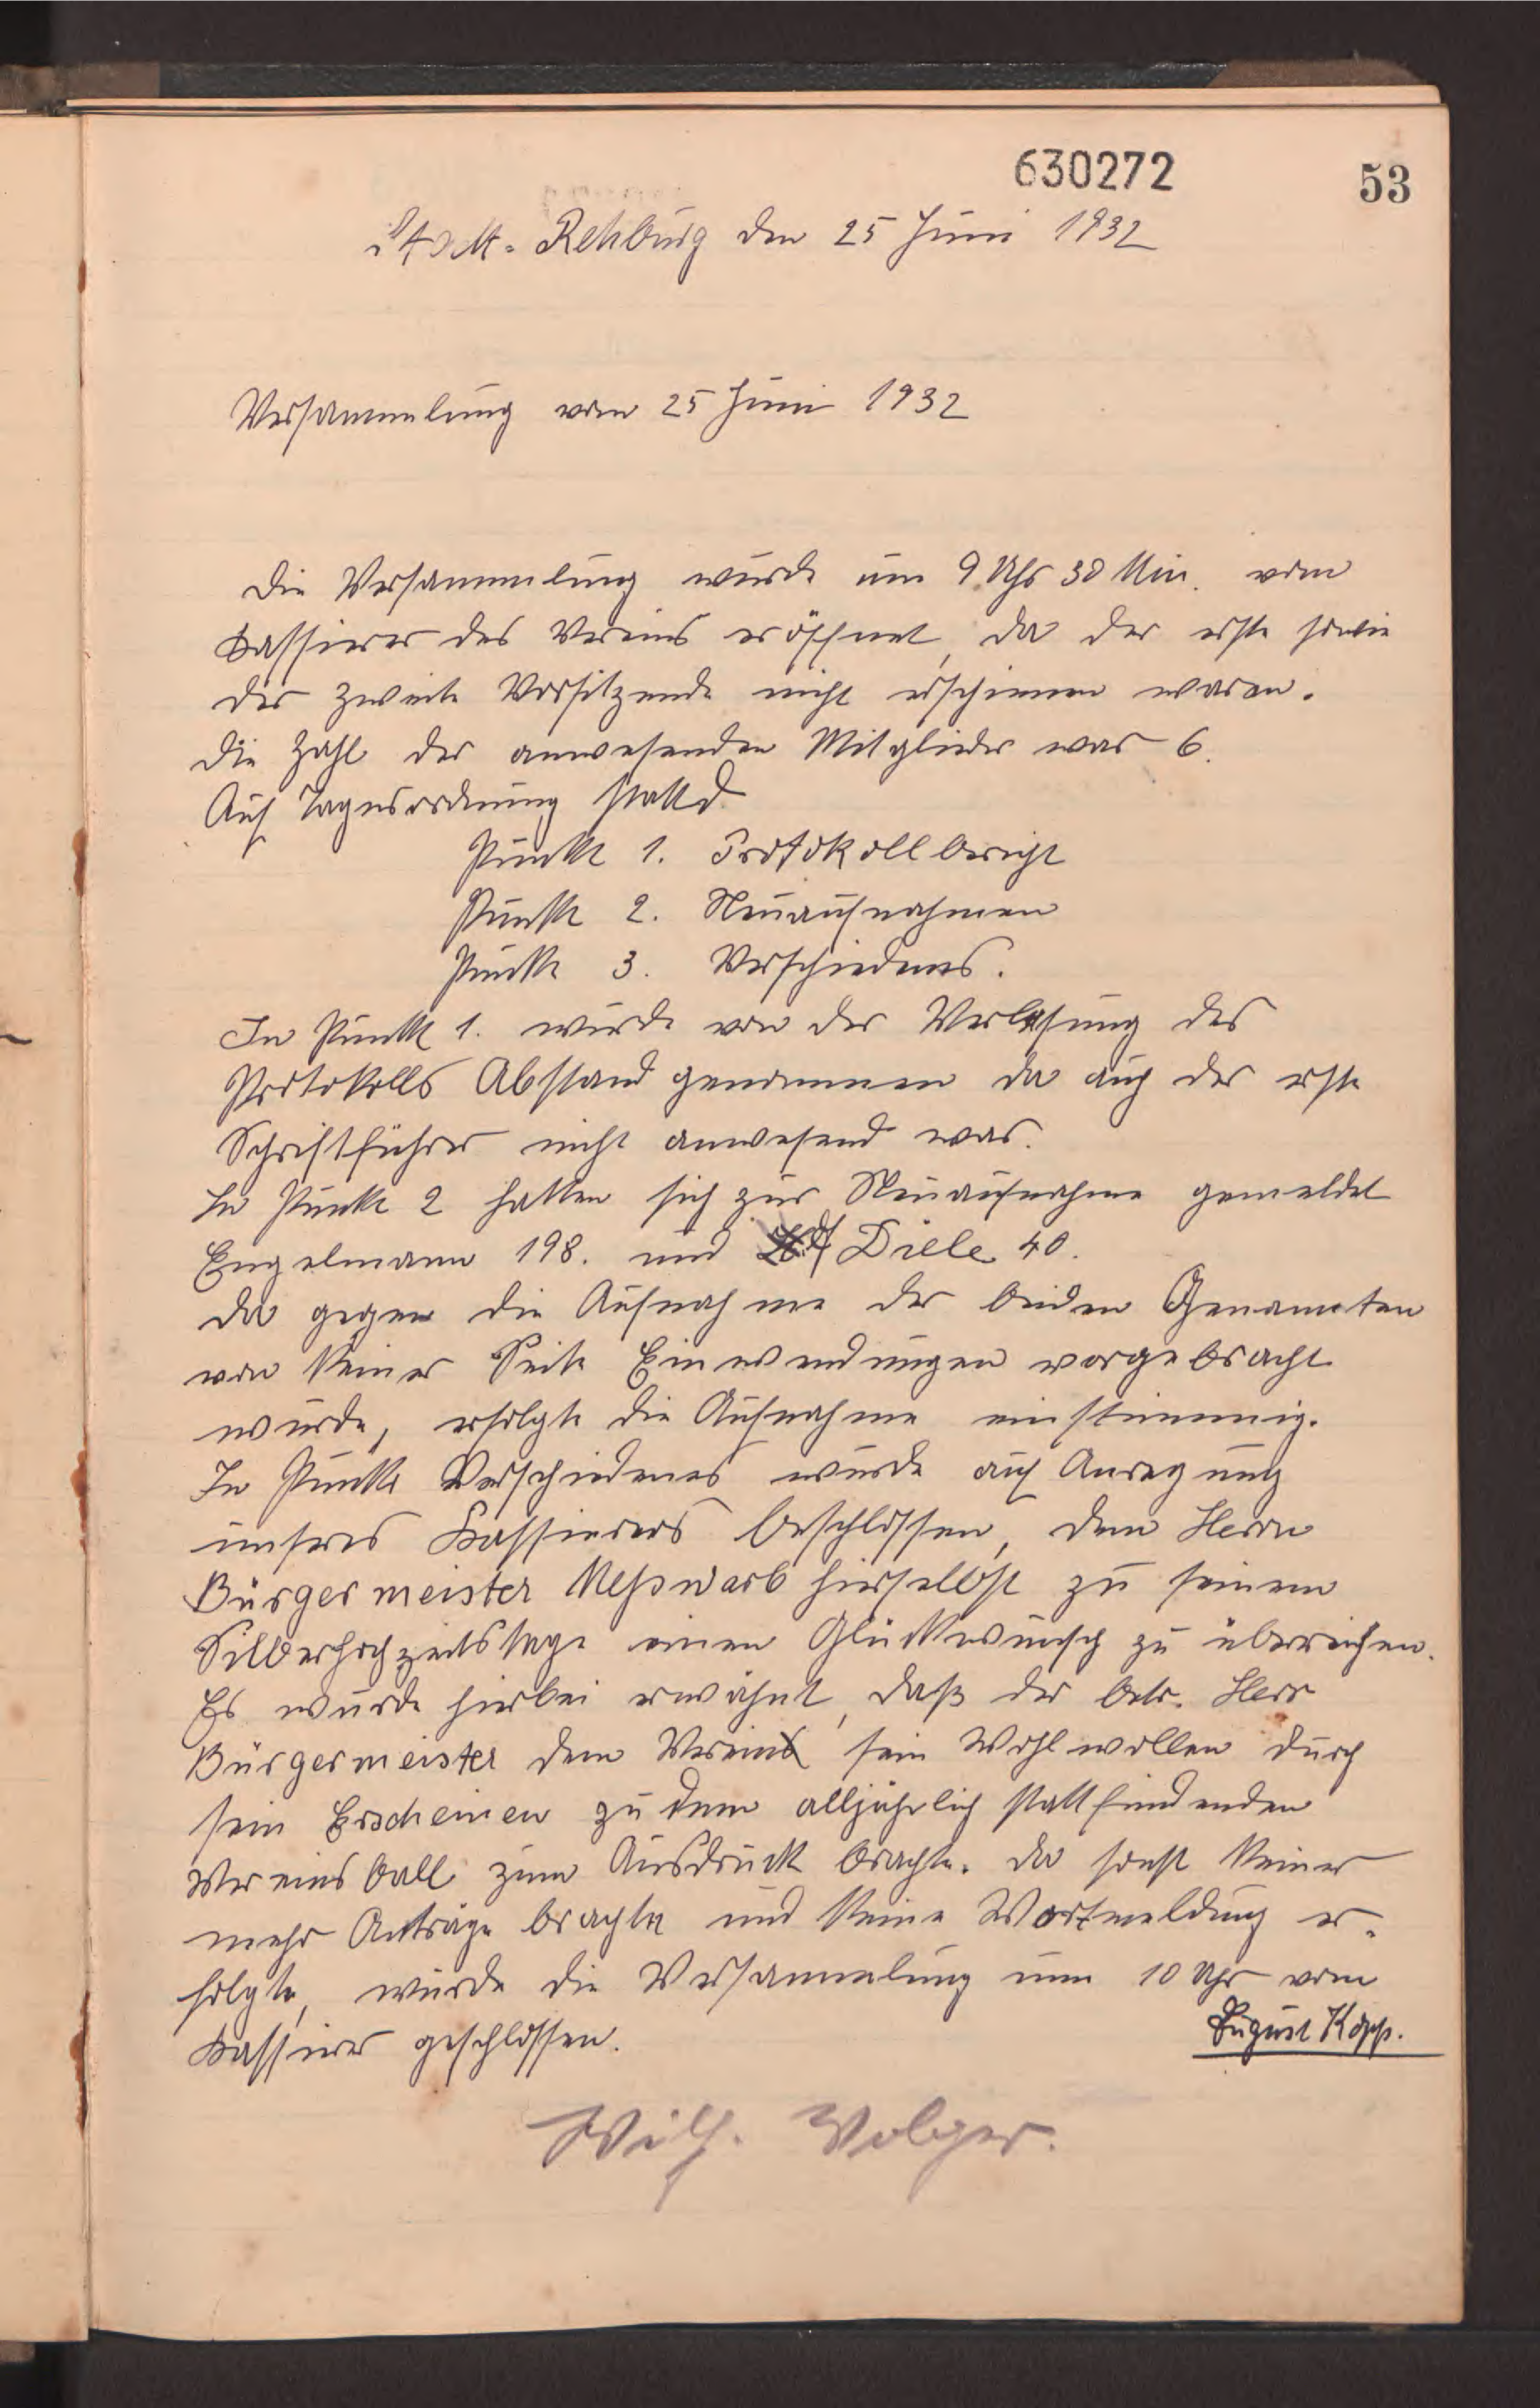 630272
53
Stadt-Rehburg den 25 Juni 1932
Versammlung vom 25 Juni 1932
Die Versammlung wurde um 9 Uhr 30 Min. vom
Kassierer des Vereins eröffnet, da der erste sowie
der zweite Vorsitzende nicht erschienen waren.
Die Zahl der anwesenden Mitglieder war 6.
Auf Tagesordnung stand
Punkt 1. Protokollbericht
Punkt 2. Neuaufnahmen
Punkt 3. Verschiedenes.
In Punkt 1. wurde von der Verlesung des
Protokolls Abstand genommen da auch der erste
Schriftführer nicht anwesend war.
In Punkt 2 hatten sich zur Neuaufnahme gemeldet
Engelmann 198. und Diele 40.
Da gegen die Aufnahme der beiden Genannten
von keiner Seite Einwendungen vorgebracht
wurde, erfolgte die Aufnahme einstimmig.
In Punkt Verschiedenes wurde auf Anregung
unseres Kassierers beschlossen, dem Herrn
Bürgermeister Meßwarb hierselbst zu seinem
Silberhochzeitstage einen Glückwunsch zu überreichen.
Es wurde hierbei erwähnt, daß der betr. Herr
Bürgermeister dem Verein sein Wohlwollen durch
sein Erscheinen zu dem alljährlich stattfindenden
Vereinsball zum Ausdruck brachte. Da sonst keiner
mehr Anträge brachte und keine Wortmeldung er-
folgte, wurde die Versammlung um 10 Uhr vom
Kassierer geschlossen.
August Kopp.
Wilh. Volger.